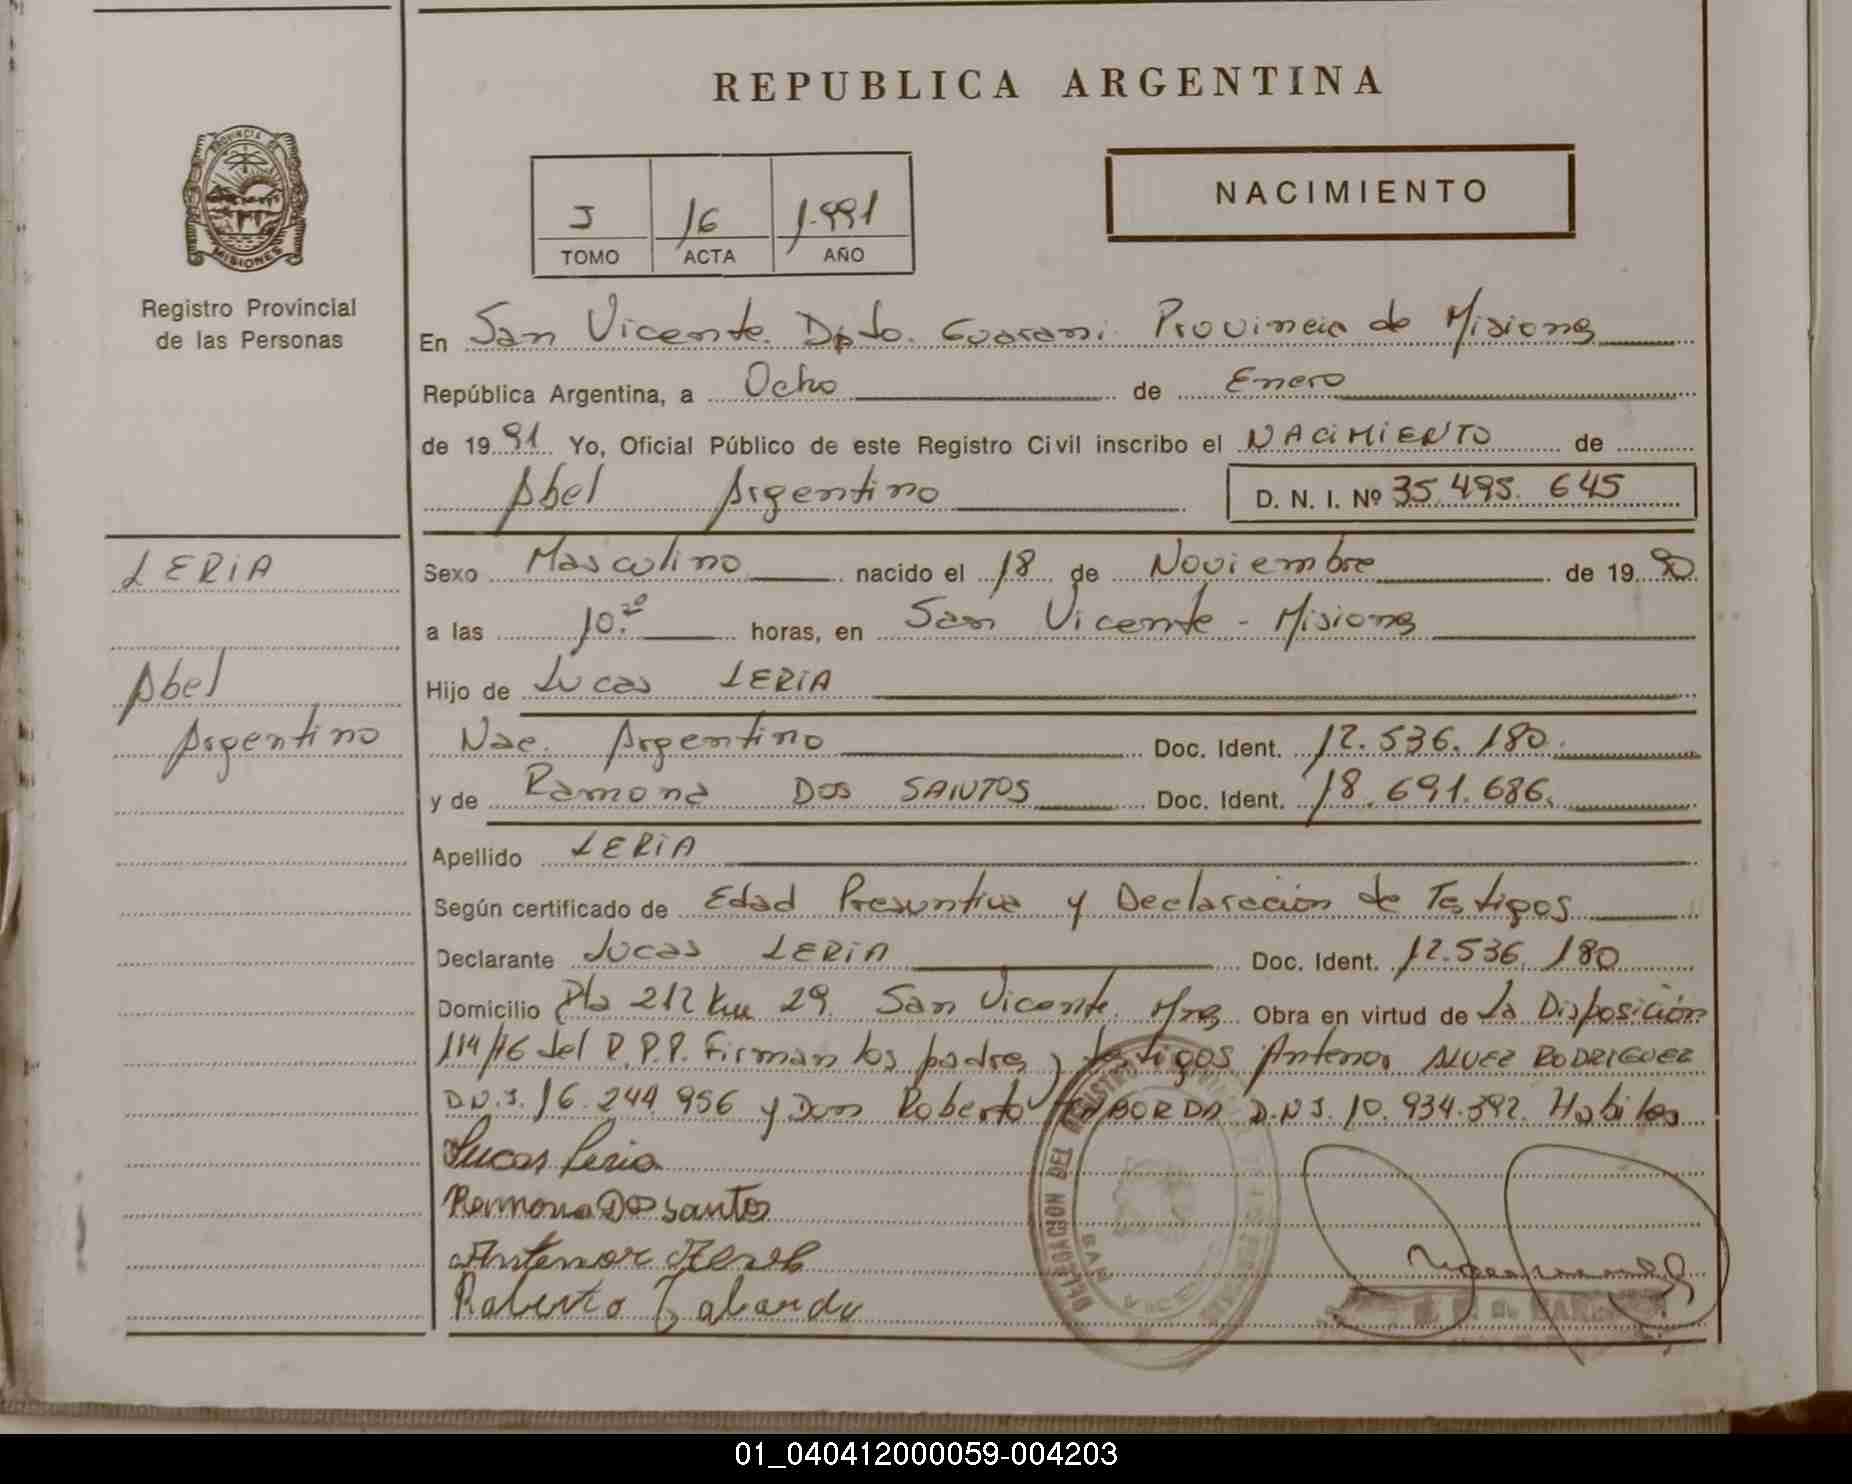 REPUBLICA ARGENTINA
PROVINCIA DE
MISIONES
Registro Provincial
de las Personas
NACIMIENTO
I 16 1.991
TOMO ACTA AÑO
En San Vicente. Dpto. Guarani. Provincia de Misiones
República Argentina, a Ocho de Enero
de 1991 Yo, Oficial Público de este Registro Civil inscribo el NACIMIENTO de
Abel Argentino D. N. I. Nº 35.495.645
LERIA
Abel
Argentino
Sexo Masculino nacido el 18 de Noviembre de 1990
a las 10.20 horas, en San Vicente - Misiones
Hijo de Lucas LERIA
Nac. Argentino Doc. Ident. 12.536.180.
y de Ramona DOS SANTOS Doc. Ident. 18.691.686.
Apellido LERIA
Según certificado de Edad Presuntiva y Declaración de Testigos
Declarante Lucas LERIA Doc. Ident. 12.536.180
Domicilio Pla 212 Km 29. San Vicente. Mnes Obra en virtud de La Disposición
114/76 del R.P.P. Firman los padres y testigos Antenor ALVEZ RODRIGUEZ
D.N.I. 16.244.956 y Don Roberto TABORDA D.N.I. 10.934.392. Habiles
Lucas Leria
Ramona Dos santos
Antenor
Roberto Taborda
DELEGACION DEL REGISTRO
SAN VICENTE
01_040412000059-004203